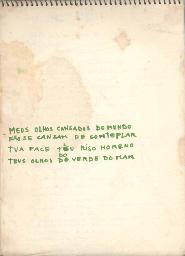 MEUS OLHOS CANSADOS DE MUNDO
NÃO SE CANSAM DE CONTEMPLAR
TUA FACE TEU RISO MORENO
TEUS OLHOS DO VERDE DO MAR